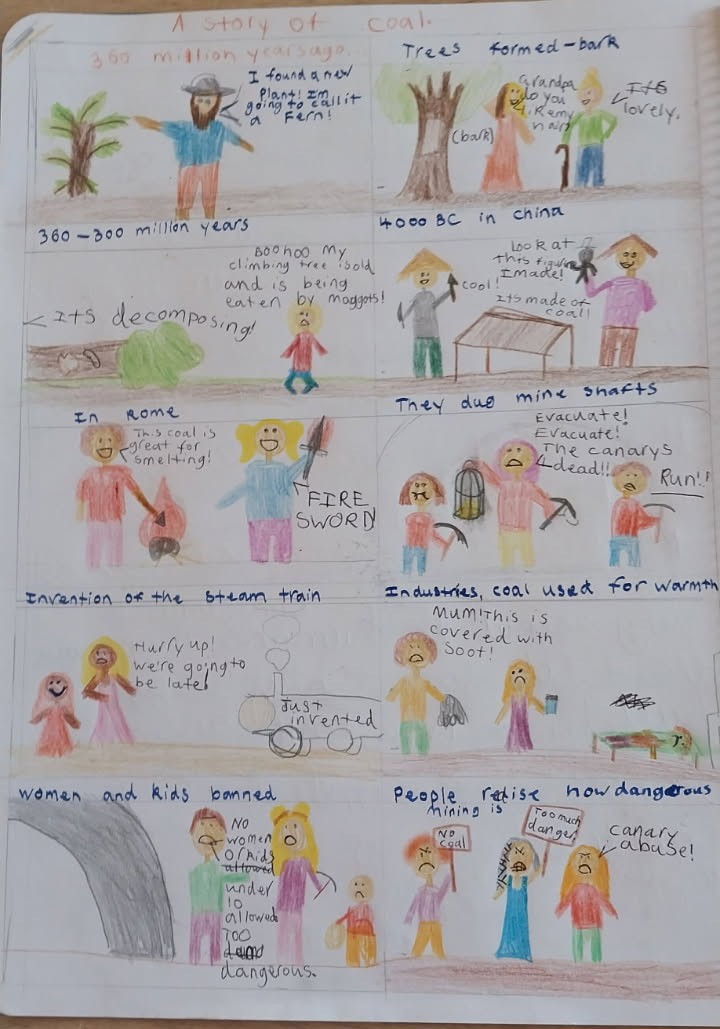 A story of coal.
360 million years ago.
I found a new
Plant! I'm
going to call it
a Fern!
Trees formed-bark
(bark)
Grandpa
do you
like my
hair?
It's
lovely.
360-300 million years
BooHoo My
climbing tree is old
and is being
eaten by maggots!
Its decomposing!
4000 BC in china
cool!
Look at
this figure
I made!
Its made of
coal!
In Rome
This coal is
great for
smelting!
FIRE
SWORD
They dug mine shafts
Evacuate!
Evacuate!
The canarys
dead!!
Run!!
Invention of the steam train
Hurry up!
we're going to
be late!
Just
invented
Industries, coal used for warmth
Mum! This is
covered with
soot!
women and kids banned
No
women
or kids
allowed
under
10
allowed
Too
dangerous.
People relise how dangerous
mining is
No
coal
Too much
danger
canary
abuse!